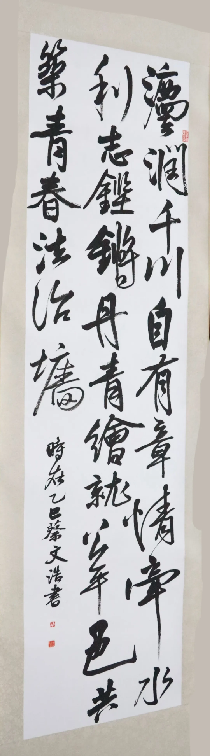 灋潤千川自有章情牽水
利志鏗鏘丹青繪就公平色共
築青春法治墻
時在乙巳蔡文浩書